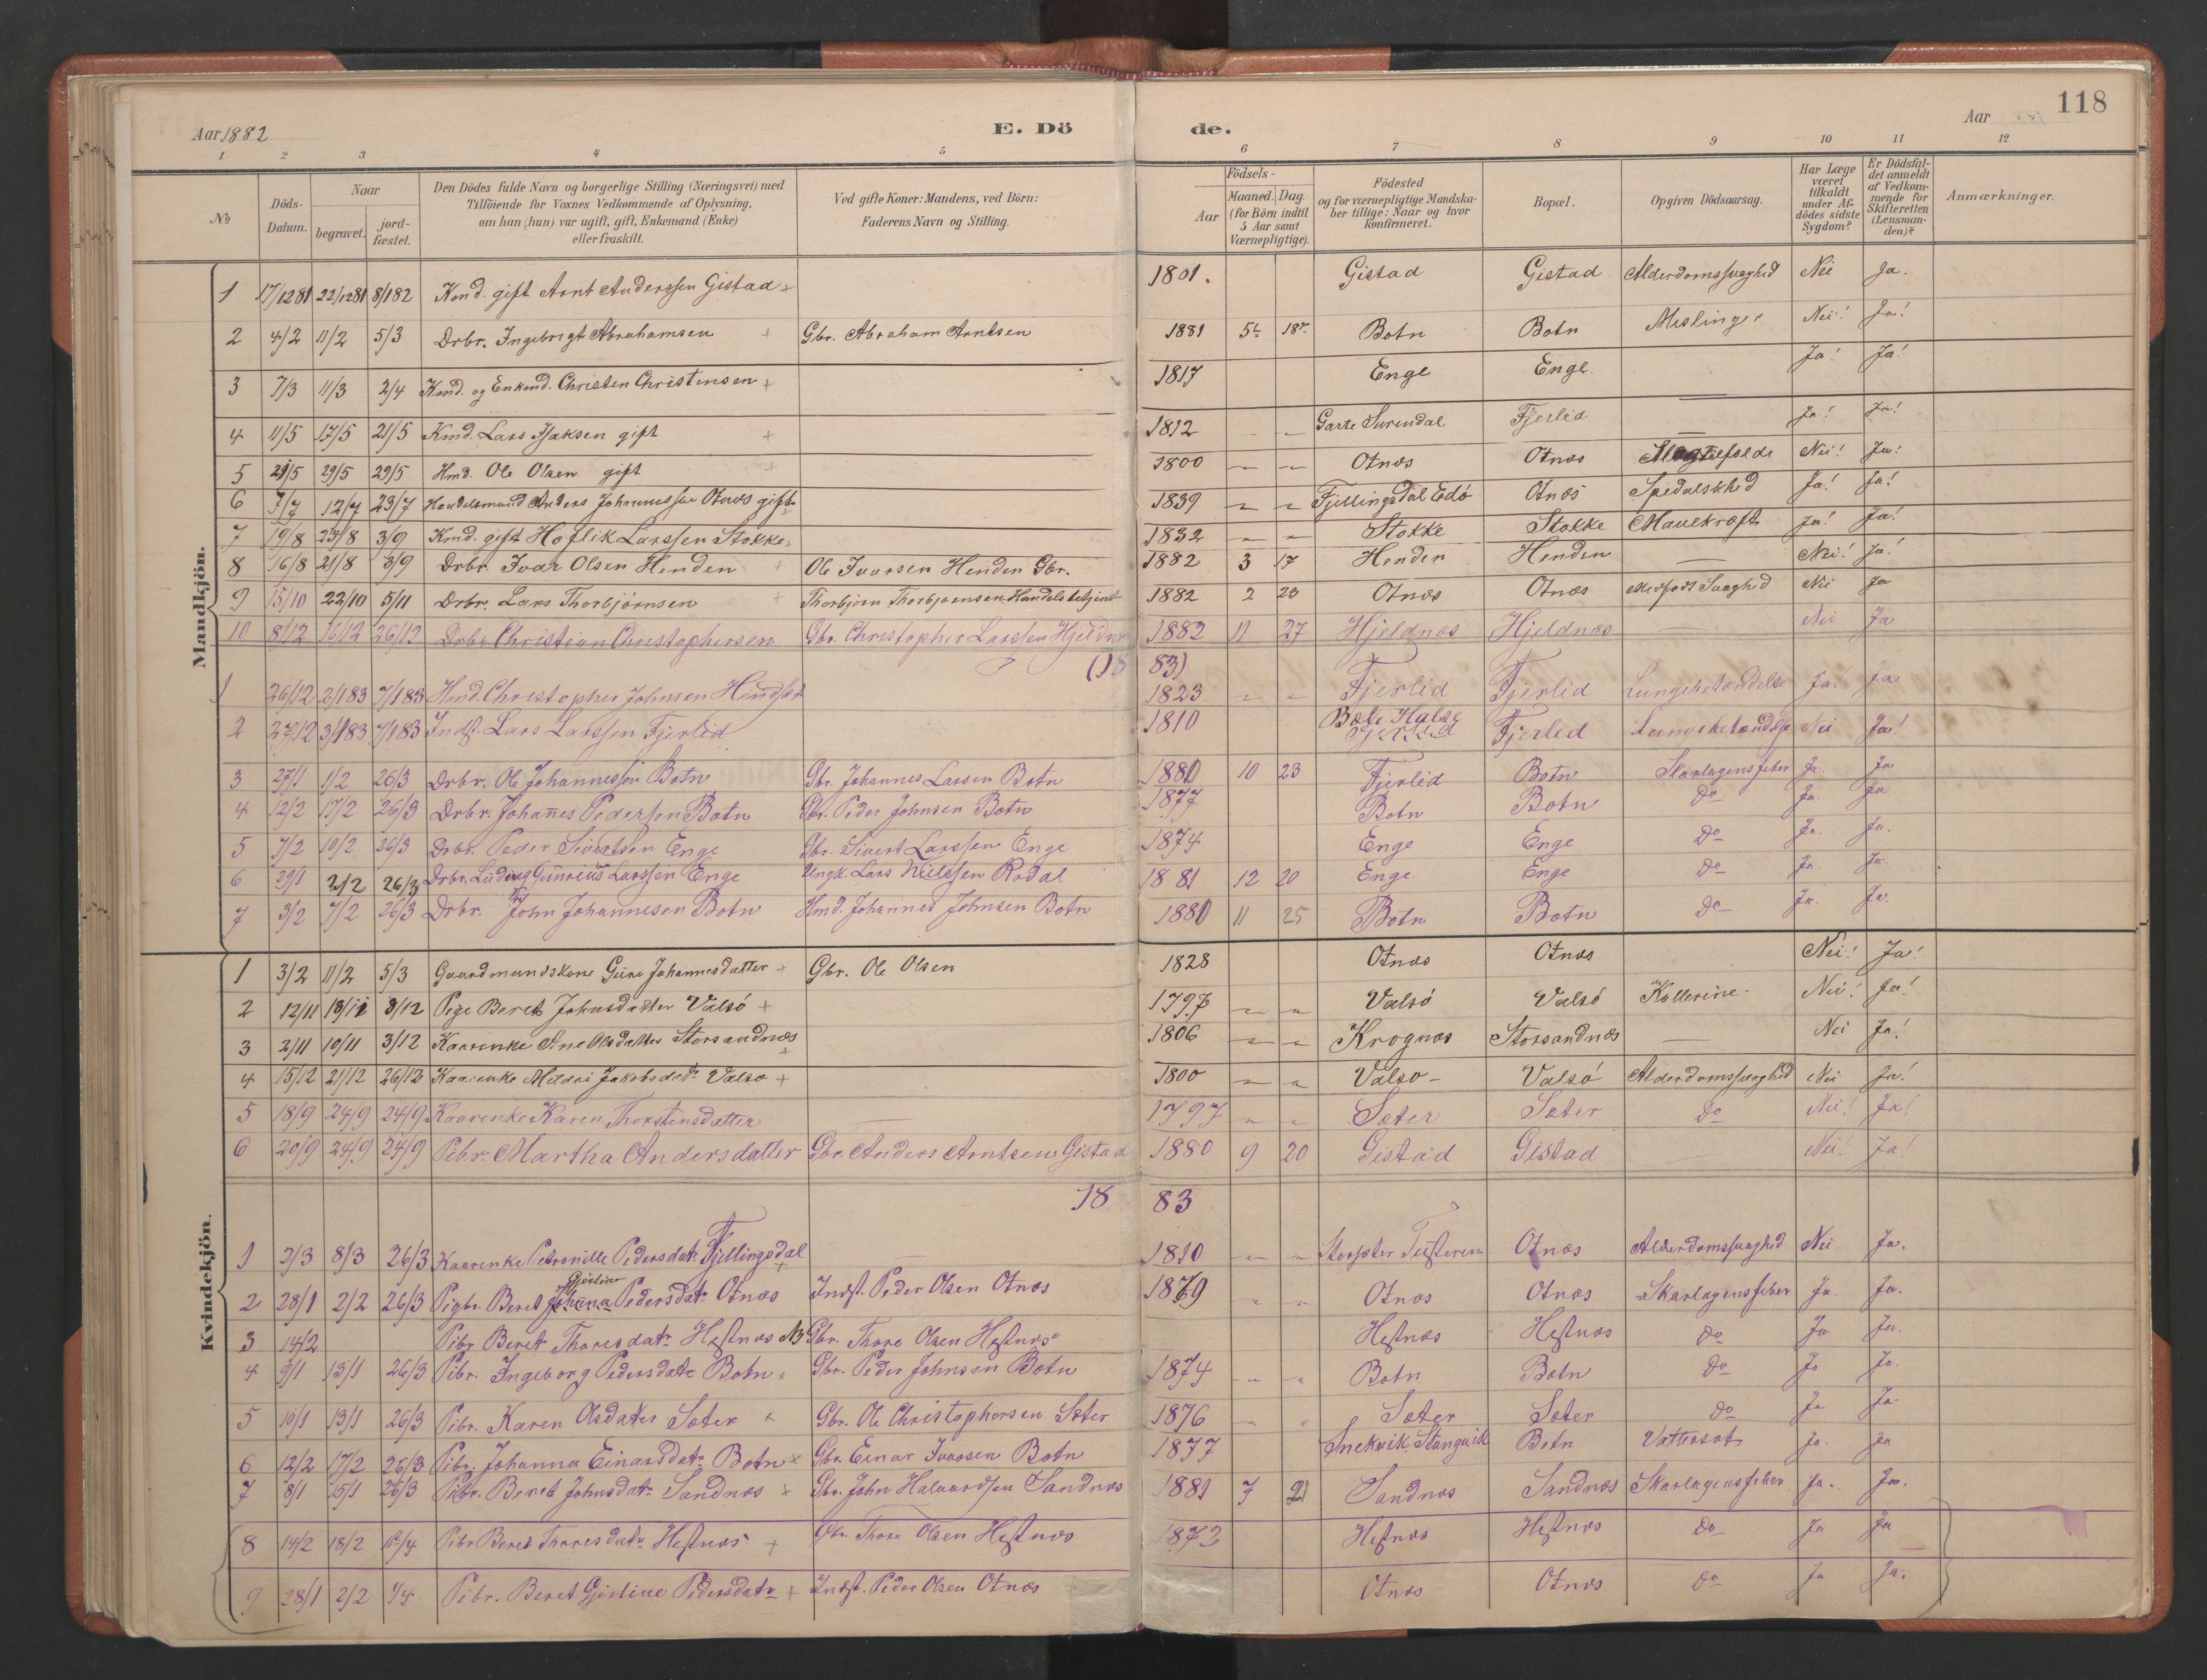 118
Aar 1882
E. Dö
de.
Aar
1 2 3 4 5 6 7 8 9 10 11 12
No
Döds-Datum.
Naar
begravet.
jord-fæstet.
Den Dödes fulde Navn og borgerlige Stilling (Næringsvei) med
Tilföiende for Voxnes Vedkommende af Oplysning,
om han (hun) var ugift, gift, Enkemand (Enke)
eller fraskilt.
Ved gifte Koner: Mandens, ved Börn:
Faderens Navn og Stilling.
Födsels-
Aar
Maaned. Dag.
(for Börn indtil
5 Aar samt
Værnepligtige).
Födested
og for værnepligtige Mandska-
ber tillige: Naar og hvor
konfirmeret.
Bopæl.
Opgiven Dödsaarsag.
Har Læge
været
tilkaldt
under Af-
dödes sidste
Sygdom?
Er Dödsfal-
det anmeldt
af Vedkom-
mende for
Skifteretten
(Lensman-
den)?
Anmærkninger.
Mandkjön.
1 17/1281 22/1281 8/182 Kmd. gift Arnt Anderssen Gistad + 1801. Gistad Gistad Alderdomssvaghed Nei Ja.
2 4/2 11/2 5/3 Drbr. Ingebrigt Abrahamsen + Gbr. Abraham Arntsen 1881 5 18 Botn Botn Meslinger Nei! Ja!
3 7/3 11/3 2/4 Kmd. og Enkemd. Christen Christensen + 1817 Enge Enge Ja! Ja!
4 11/5 17/5 21/5 Kmd. Lars Isaksen gift + 1812 " " Garte Surendal Fjerlid — Ja! Ja!
5 21/5 29/5 29/5 Hmd. Ole Olsen gift + 1800 " " Otnæs Otnæs Nei! Ja!
6 7/7 12/7 23/7 Handelsmand Anders Johannessen Otnæs gift + 1839 " " Fjellingsdal Edö Otnæs Spedalskhed Ja! Ja!
7 19/8 23/8 3/9 Kmd. gift Hoflik Larssen Stokke 1832 " " Stokke Stokke Mavekræft Ja! Ja!
8 16/8 21/8 3/9 Drbr. Ivar Olsen Henden + Ole Ivarsen Henden Gbr. 1882 3 17 Henden Henden — Nei! Ja!
9 15/10 22/10 5/11 Drbr. Lars Thorbjörnsen + Thorbjörn Thorbjørnsen Handelsbetjent 1882 2 23 Otnæs Otnæs Medfødt Svaghed Nei Ja
10 8/12 16/12 26/12 Drbr. Christian Christophersen Gbr. Christopher Larssen Hjeldnæs 1882 11 27 Hjeldnæs Hjeldnæs — Nei Ja
(18 83)
1 26/12 2/183 7/183 Hmd. Christopher Johnsen 1823 " " Fjerlid Fjerlid Lungebetændelse Ja. Ja
2 27/12 3/183 7/183 Indst. Lars Larssen Fjerlid 1810 Bøle Halse Fjerlid Lungebetændelse Nei Ja!
3 27/1 1/2 26/3 Drbr. Ole Johannessen Botn Gbr. Johannes Larsen Botn 1880 10 23 Fjerlid Botn Skarlagensfeber Ja. Ja
4 12/2 17/2 26/3 Drbr. Johañes Pedersen Botn Gbr. Peder Johnsen Botn 1877 Botn Botn Do Ja. Ja
5 7/2 10/2 26/3 Drbr. Peder Sivertsen Enge Gbr. Sivert Larssen Enge 1874 Enge Enge Do Ja. Ja.
6 29/1 2/2 26/3 Drbr. Ludvig Gunnerius Larssen Enge Ungk. Lars Nielssen Rodal 1881 12 20 Enge Enge Do Ja. Ja.
7 3/2 7/2 26/3 Drbr. John Johannesen Botn Hmd. Johannes Johnsen Botn 1881 11 25 Botn Botn Do Ja. Ja.
Kvindekjön.
1 3/2 11/2 5/3 Gaardmandskone Johannesdatter + Gbr. Ole Olsen 1828 Otnæs Otnæs Nei! Ja!
2 12/11 18/11 3/12 Pige Beret Johnsdatter Valsö + 1797 " " Valsö Valsö Kollerine Nei! Ja!
3 2/11 10/11 3/12 Kaarenke Ane Olsdatter Storsandnæs + 1806 " " Krognæs Storsandnæs — Nei Ja!
4 15/12 21/12 26/12 Kaarenke Jakobsdatr Valsø + 1800 " " Valsø Valsö Alderdomssvaghed Nei Ja!
5 18/9 24/9 24/9 Kaarenke Karen Thorstensdatter — 1797 " " Sæter Sæter Do Nei! Ja!
6 20/9 24/9 24/9 Pibr. Martha Andersdatter Gbr. Anders Arntsen Gistad 1880 9 20 Gistad Gistad Nei! Ja!
18 83
1 2/3 8/3 26/3 Kaarenke Petronille Pedersdatr Fjellingsdal + — 1810 " " Tusteren Otnæs Alderdomssvaghed Nei Ja.
2 28/1 2/2 26/3 Pigbr. Beret Johanna Gjertine Pedersdatr Otnæs Indst. Peder Olsen Otnæs 1879 " " Otnæs Otnæs Skarlagensfeber Ja. Ja.
3 14/2 Pibr Beret Thoresdatr Hestnæs NB Gbr. Thore Olsen Hestnæs Hestnæs Hestnæs Do Ja Ja.
4 9/1 13/1 26/3 Pibr. Ingeborg Pedersdatr Botn + Gbr. Peder Johnsen Botn 1874 " " Botn Botn Do Ja Ja.
5 10/1 13/1 26/3 Pibr. Karen Olsdatter Sæter + Gbr. Ole Christophersen Sæter 1876 " " Sæter Sæter Do Ja Ja
6 12/2 17/2 26/3 Pibr. Johanna Einarsdatr Botn + Gbr. Einar Ivarsen Botn 1877 Snekvik Stangvik Botn Vattersot Ja. Ja
7 8/1 15/1 26/3 Pibr. Beret Johnsdatr Sandnæs + Gbr. John Halvardsen Sandnæs 1881 7 21 Sandnæs Sandnæs Skarlagensfeber Ja. Ja.
8 14/2 18/2 Pibr Beret Thoresdatr Hestnæs + Gbr. Thore Olsen Hestnæs 1872 Hestnæs Hestnæs Do Ja Ja
9 28/1 2/2 1/4 Pibr. Beret Gjertine Pedersdatr + Indst. Peder Olsen Otnæs Otnæs Otnæs Do Ja Ja.